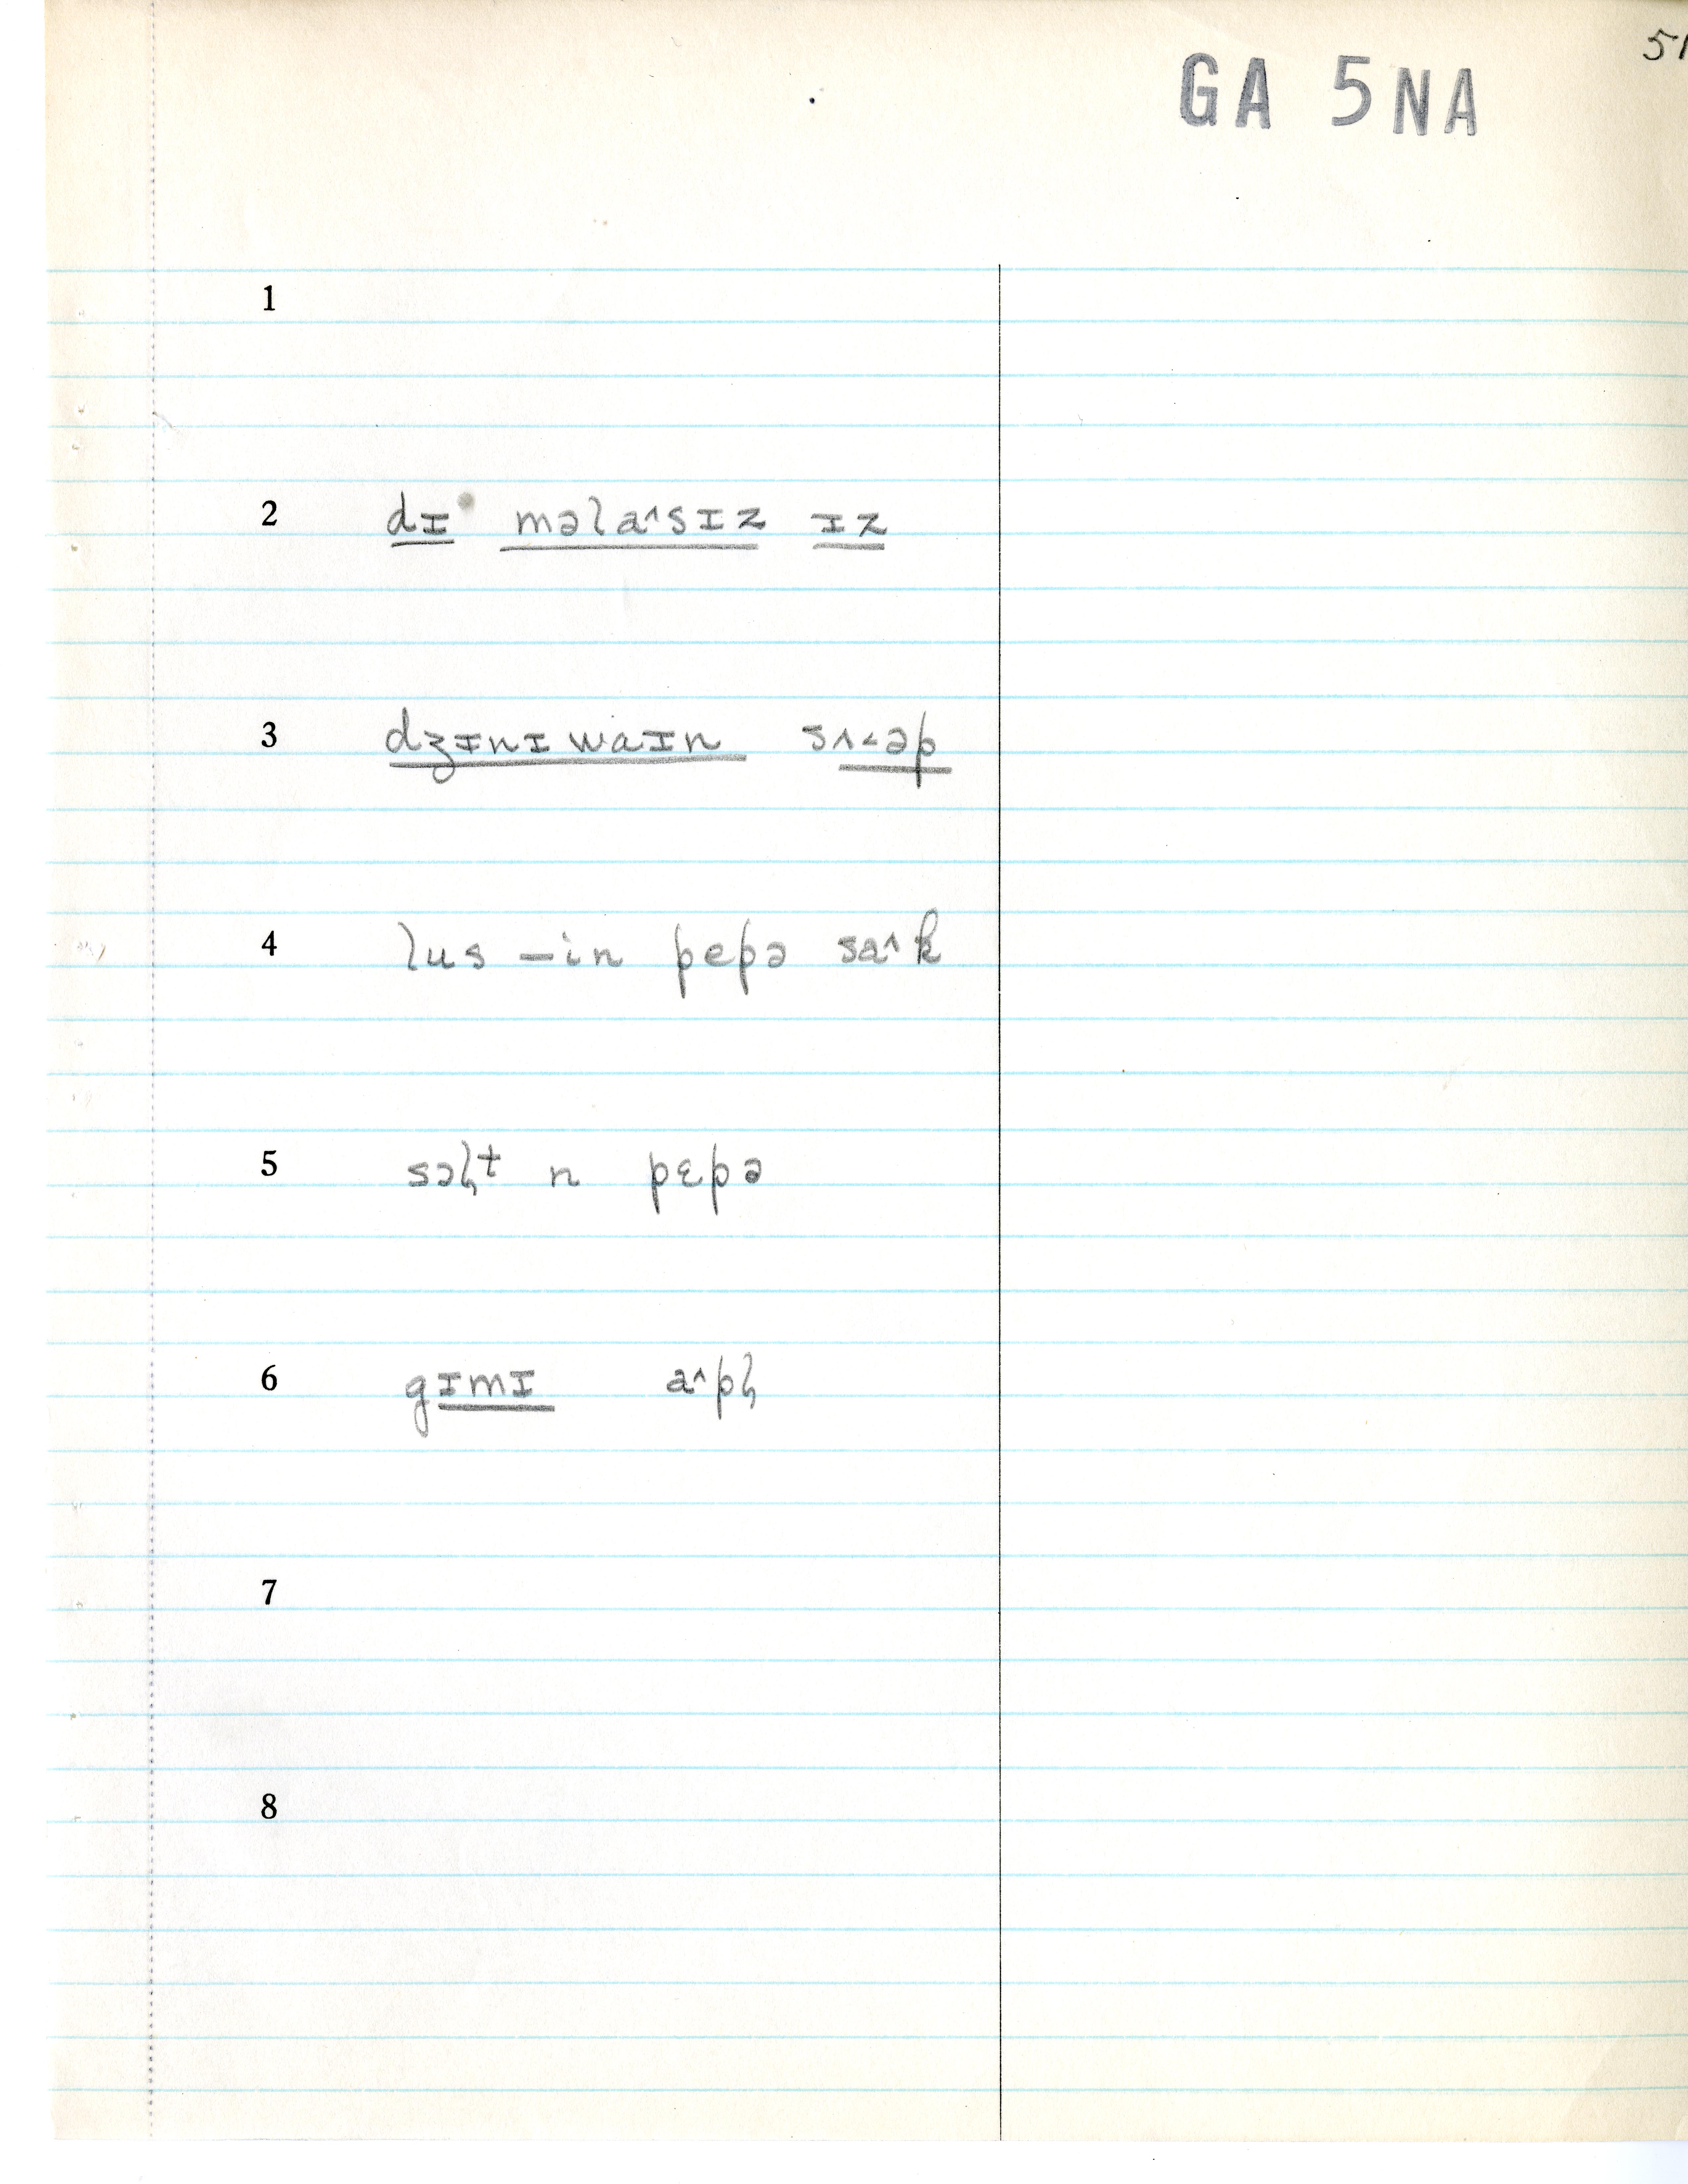 51
GA 5NA
1
2 dɪ məla^sɪz ɪz
3 dʒɪnɪwaɪn sʌ<əp
4 lus –in pepə sa^k
5 sɔl̩t n pɛpə
6 gɪmɪ a^pl̩
7
8